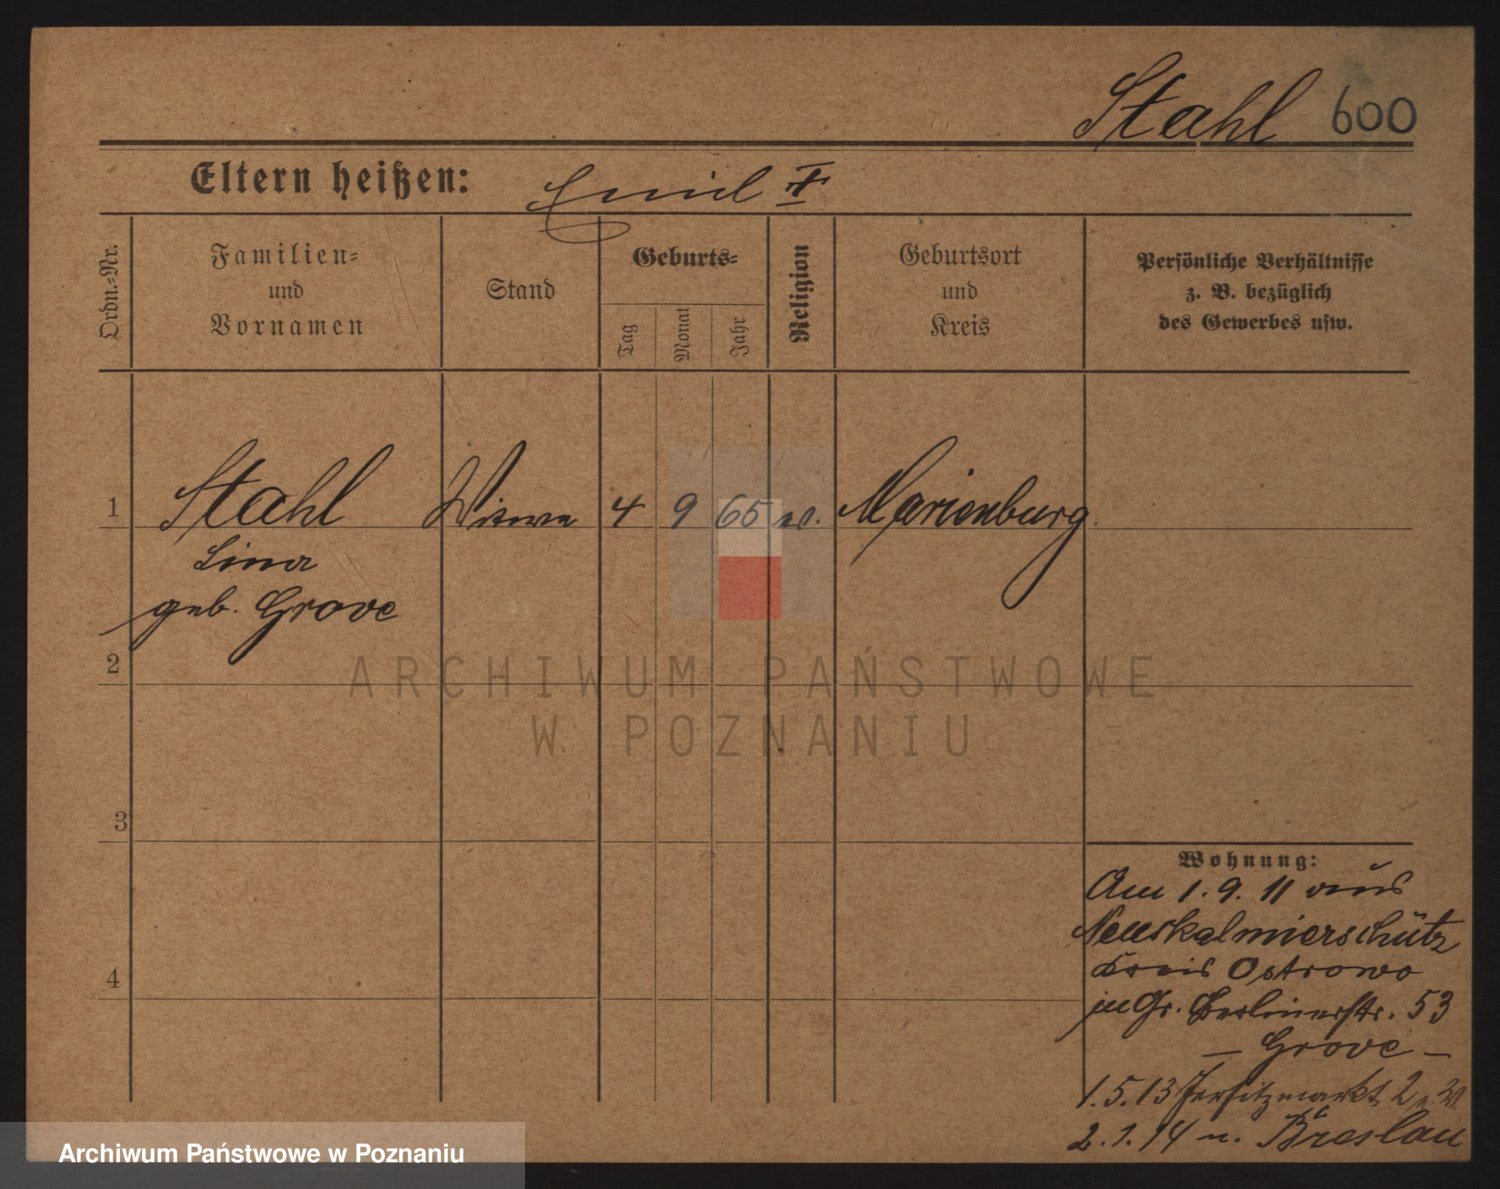 Stahl 600
Eltern heißen: Emil
Ordn.-Nr.
Familien-
und
Vornamen
Stand
Geburts-
Tag
Monat
Jahr
Religion
Geburtsort
und
Kreis
Persönliche Verhältnisse
z. B. bezüglich
des Gewerbes usw.
1 Stahl Witwe 4 9 65 Marienburg
Lina
geb. Grove
2
3
4
Wohnung:
Am 1. 9. 11 aus
Neuskalmierschütz
Kreis Ostrowo
in Gr. Berlinerstr. 53
– Grove –
1. 5. 13 Jersitzmarkt 2
2. 1. 14 n. Breslau
ARCHIWUM PAŃSTWOWE
W POZNANIU
Archiwum Państwowe w Poznaniu